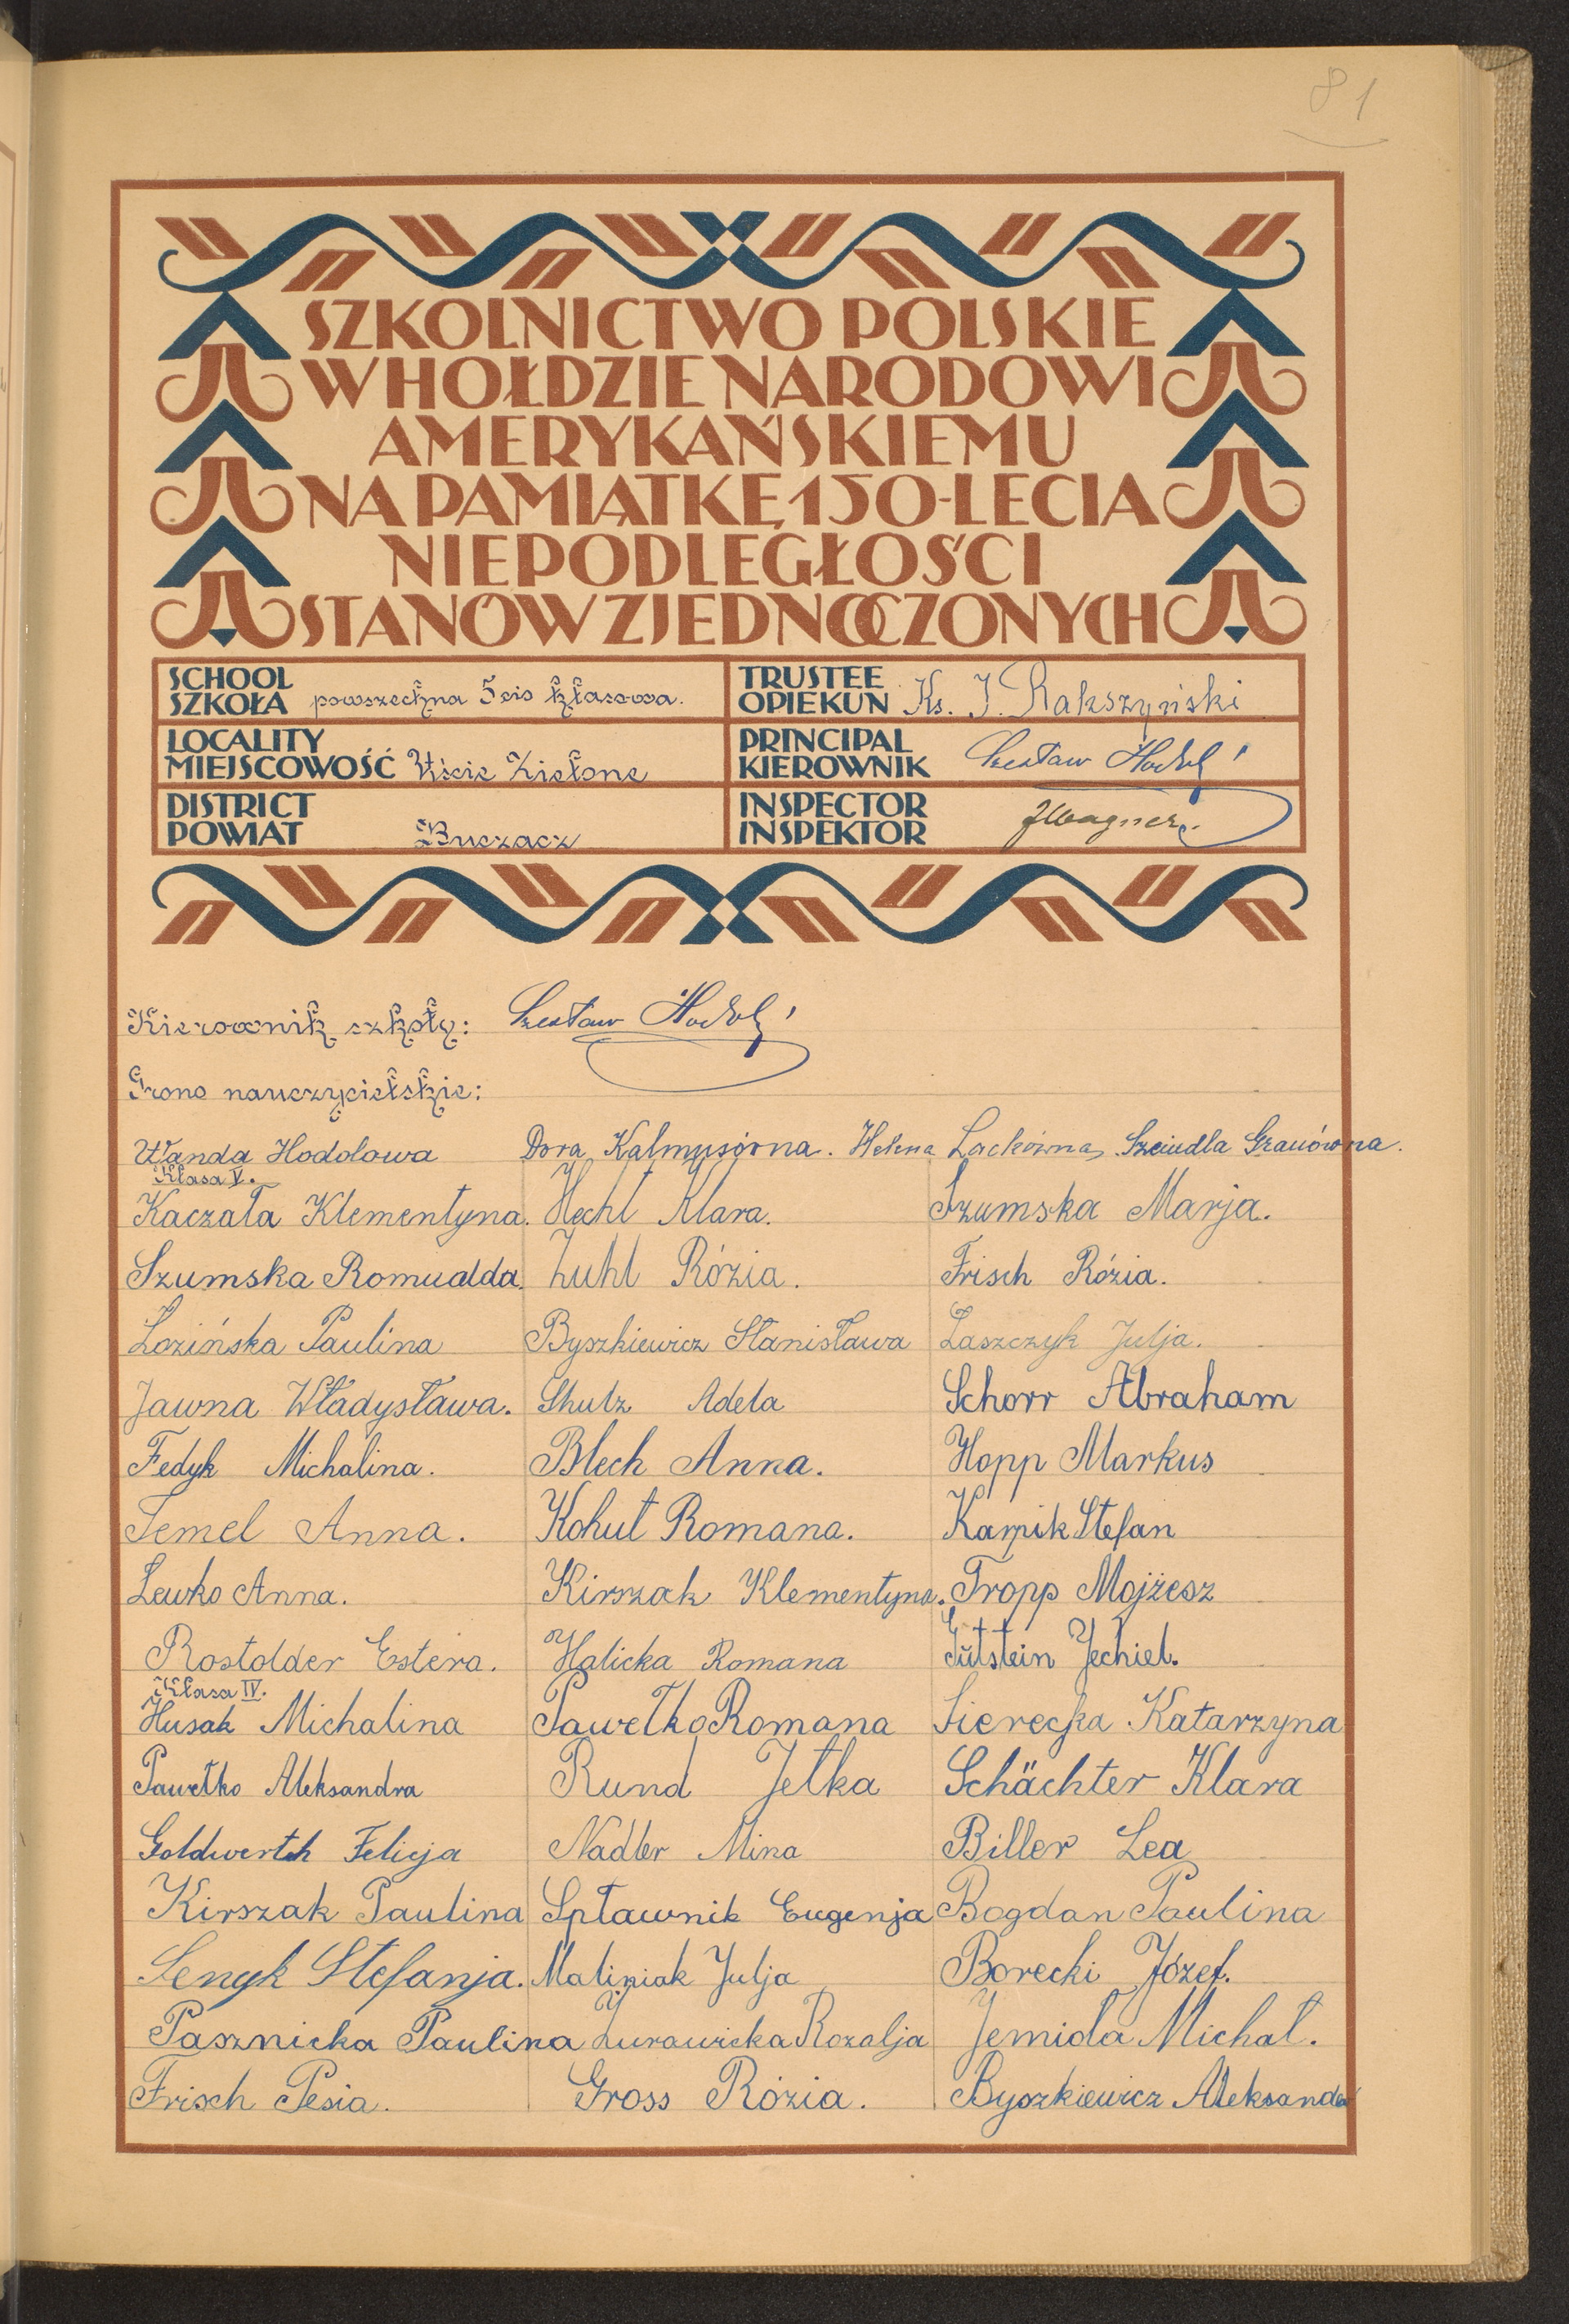 81
SZKOLNICTWO POLSKIE
W HOŁDZIE NARODOWI
AMERYKAŃSKIEMU
NA PAMIĄTKĘ 150-LECIA
NIEPODLEGŁOŚCI
STANÓW ZJEDNOCZONYCH
SCHOOL
SZKOŁA powszechna 5cio klasowa.
TRUSTEE
OPIEKUN Ks. J. Rakszyński
LOCALITY
MIEJSCOWOŚĆ Uście Zielone
PRINCIPAL
KIEROWNIK Czesław Hodoły
DISTRICT
POWIAT Buczacz
INSPECTOR
INSPEKTOR JWagner
Kierownik szkoły: Czesław Hodoły
Grono nauczycielskie:
Wanda Hodolowa Dora Kalmusówna. Helena Lackówna, Szeindla Grauówna.
Klasa V.
Kaczała Klementyna. Hecht Klara. Szumska Marja.
Szumska Romualda. Zuhl Rózia. Frisch Rózia.
Łozińska Paulina Byszkiewicz Stanisława Łaszczyk Julja.
Jawna Władysława. Shulz Adela Schorr Abraham
Fedyk Michalina. Blech Anna. Hopp Markus
Temel Anna. Kohut Romana. Karpik Stefan
Lewko Anna. Kirszak Klementyna. Tropp Mojżesz
Rostolder Estera. Halicka Romana Gutstein Jechiel.
Klasa IV.
Husak Michalina Pawełko Romana Sierecka Katarzyna
Pawełko Aleksandra Rund Jetka Schächter Klara
Goldwerth Felicja Nadler Mina Biller Lea
Kirszak Paulina Spławnik Eugenja Bogdan Paulina
Senyk Stefanja. Maliniak Julja Borecki Józef.
Pasznicka Paulina Żurawicka Rozalja Jemioła Michał.
Frisch Pesia. Gross Rózia. Byszkiewicz Aleksander